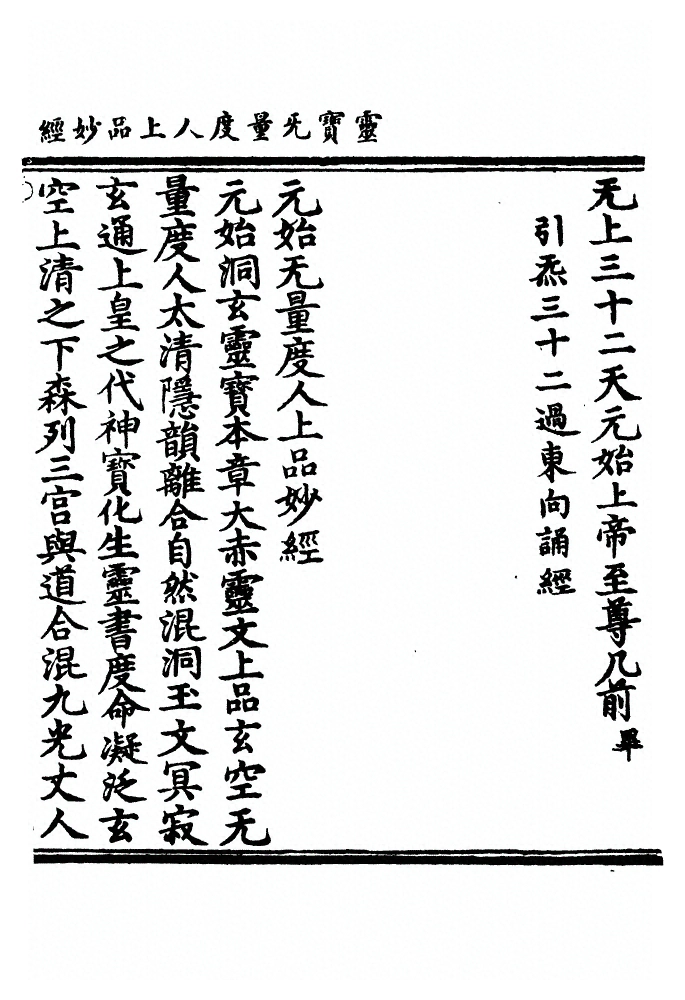 靈寶无量度人上品妙經
无上三十二天元始上帝至尊几前畢
引炁三十二過東向誦經
元始无量度人上品妙經
元始洞玄靈寶本章大赤靈文上品玄空无
量度人太清隱韻離合自然混洞玉文冥寂
玄通上皇之代神寶化生靈書度命凝泛玄
空上清之下森列三宮與道合混九光丈人